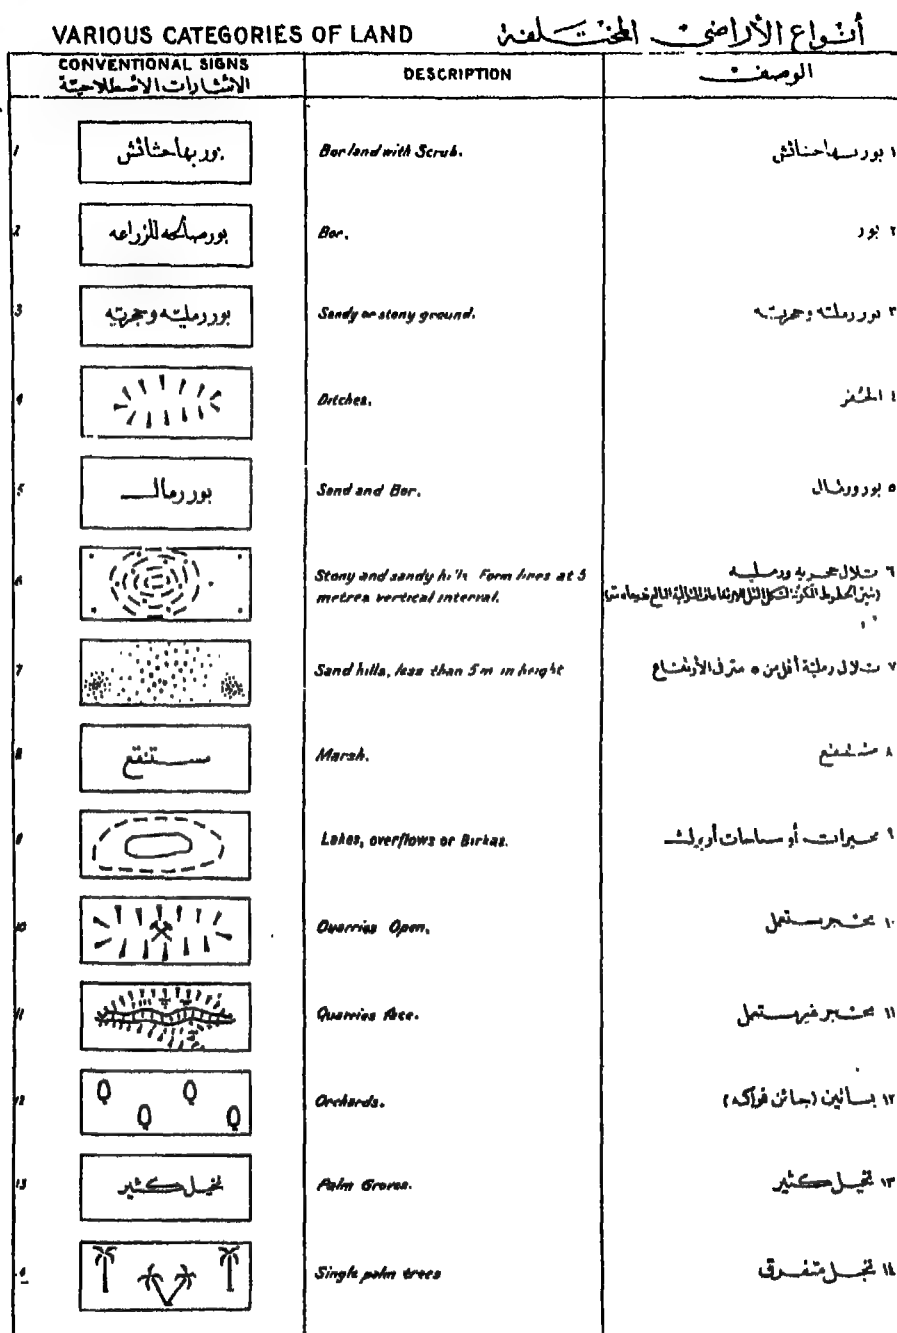 VARIOUS CATEGORIES OF LAND أنواع الأراضي المختلفة
CONVENTIONAL SIGNS DESCRIPTION الوصف
الاشارات الاصطلاحية
1 بور بها حشائش Bor land with Scrub. ١ بور بها حشائش
2 بور صالحه للزراعه Bor. ٢ بور
3 بور رمليه وحجريه Sandy or stony ground. ٣ بور رمليه وحجريه
4 Ditches. ٤ الحفر
5 بور رمال Sand and Bor. ٥ بور ورمال
6 Stony and sandy hills Form lines at 5 ٦ تلال حجريه ورمليه
metres vertical interval.
7 Sand hills, less than 5m in height ٧ تلال رملية أقل من ٥ متر في الأرتفاع
8 مستنقع Marsh. ٨ مستنقع
9 Lakes, overflows or Birkas. ٩ بحيرات أو سياحات أو برك
10 Quarries Open. ١٠ محجر مستعمل
11 Quarries face. ١١ محجر غير مستعمل
12 Orchards. ١٢ بساتين (جنائن فواكه)
13 نخيل كثير Palm Groves. ١٣ نخيل كثير
Single palm trees ١٤ نخيل متفرق